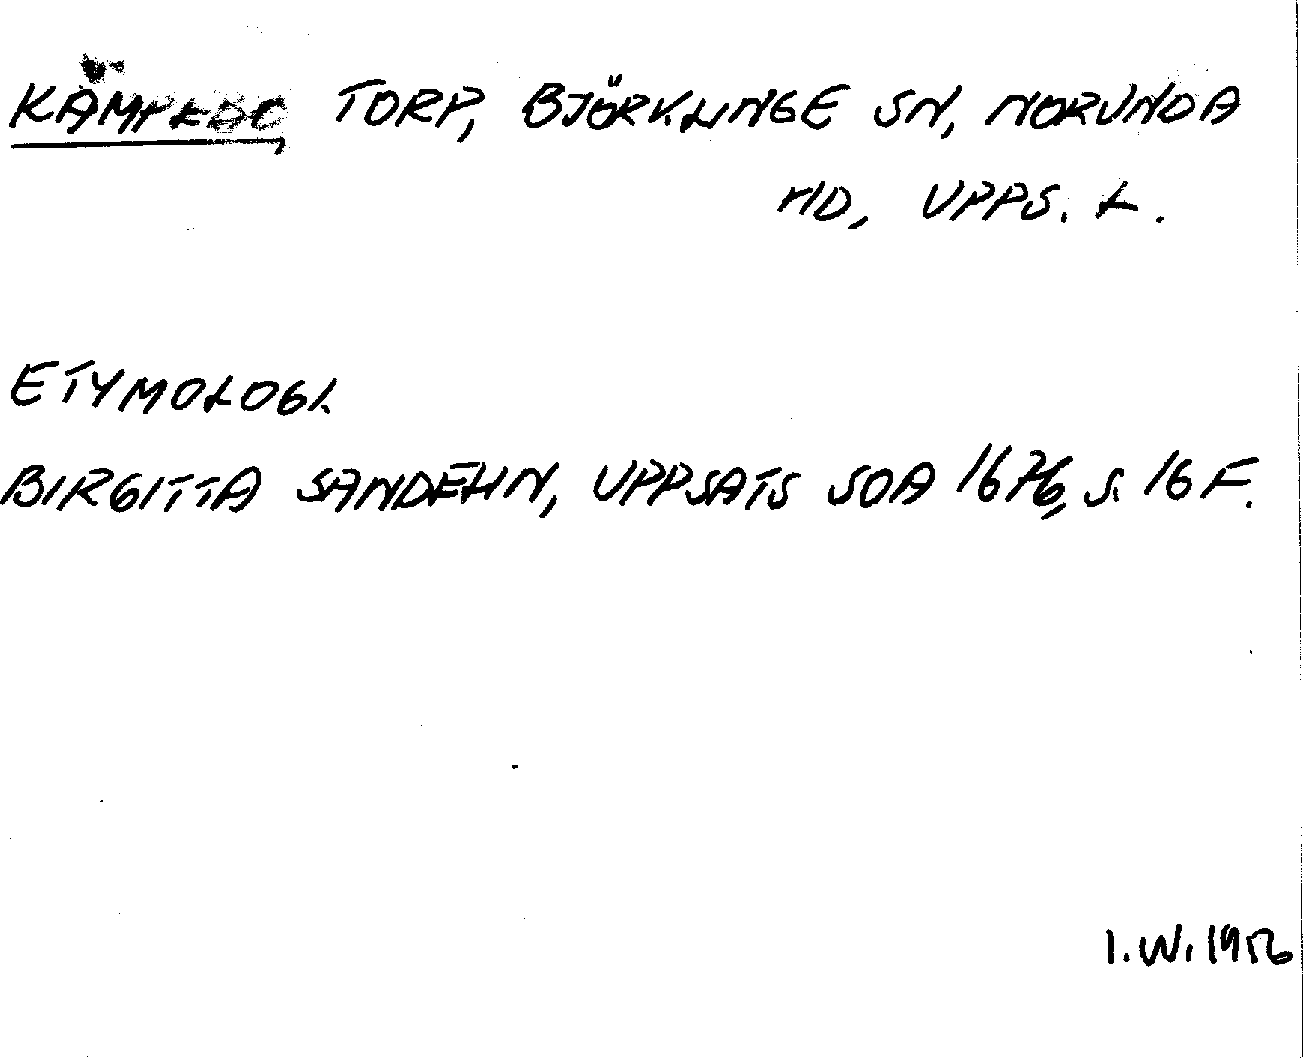 KÄMPEBO, TORP, BJÖRKLINGE SN, NORUNDA
HD, UPPS. L.
ETYMOLOGI.
BIRGITTA SANDEHN, UPPSATS SOA 1676, S. 16 F.
I.W. 1956